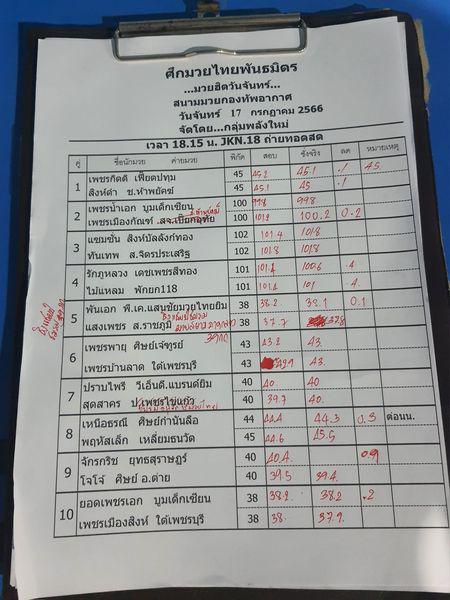 ศึกมวยไทยพันธมิตร
...มวยฮิตวันจันทร์...
สนามมวยกองทัพอากาศ
วันจันทร์ 17 กรกฎาคม 2566
จัดโดย...กลุ่มพลังใหม่
เวลา 18.15 น. JKN.18 ถ่ายทอดสด
คู่ ชื่อนักมวย ค่ายมวย พิกัด สอบ ชั่งจริง ลด หมายเหตุ
1 เพชรกิตติ เพี้ยดปทุม 45 45.2 45.1 .1 45
สิงห์ดำ ช.ห้าพยัคฆ์ 45 45.1 45 .1
2 เพชรน้ำเอก บูมเด็กเซียน 100 99.8 99.8
เพชรเมืองกัณฑ์ สจ.เปี๊ยกอุทัย 100 101.2 100.2 0.2
3 แซมซั่น สิงห์บัลลังก์ทอง 102 101.4 101.8
ทันเทพ ส.จิตรประเสริฐ 102 101.8 101.8
4 รักภูหลวง เดชเพชรสีทอง 101 101.4 100.6 .4
ไม้แหลม พักยก118 101 101.4 101 .4
5 พันเอก พี.เค.แสนชัยมวยไทยยิม 38 38.2 38.1 0.1
แสงเพชร ส.ราชภูมิ 38 37.7 37.8
6 เพชรพายุ ศิษย์เจ๊ทูรย์ 43 43.2 43
เพชรบ้านลาด ใต้เพชรบุรี 43 43
7 ปราบไพรี วีเอ็นดี.แบรนด์ยิม 40 40. 40
สุดสาคร ป.เพชรไข่แก้ว 40 39.7 40.
8 เหนือธรณี ศิษย์กำนันลือ 44 44.4 44.3 0.3 ต่อนน.
พฤหัสเล็ก เหลี่ยมธนวัด 45 44.6 45.5
9 จักรกริช ยุทธสุราษฎร์ 40 40.4 0.9
โจโจ้ ศิษย์ อ.ต่าย 40 39.5 39.4
10 ยอดเพชรเอก บูมเด็กเซียน 38 38.2 38.2 .2
เพชรเมืองสิงห์ ใต้เพชรบุรี 38 38. 37.9